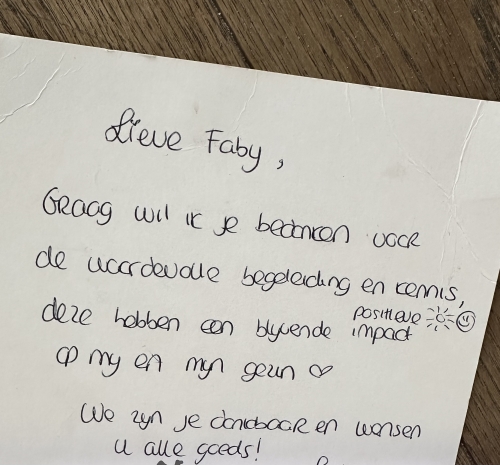 Lieve Faby,
Graag wil ik je bedanken voor
de waardevolle begeleiding en kennis,
deze hebben een blyvende positieve impact
op my en myn gezin ♡
We zyn je dankbaar en wensen
u alle goeds!